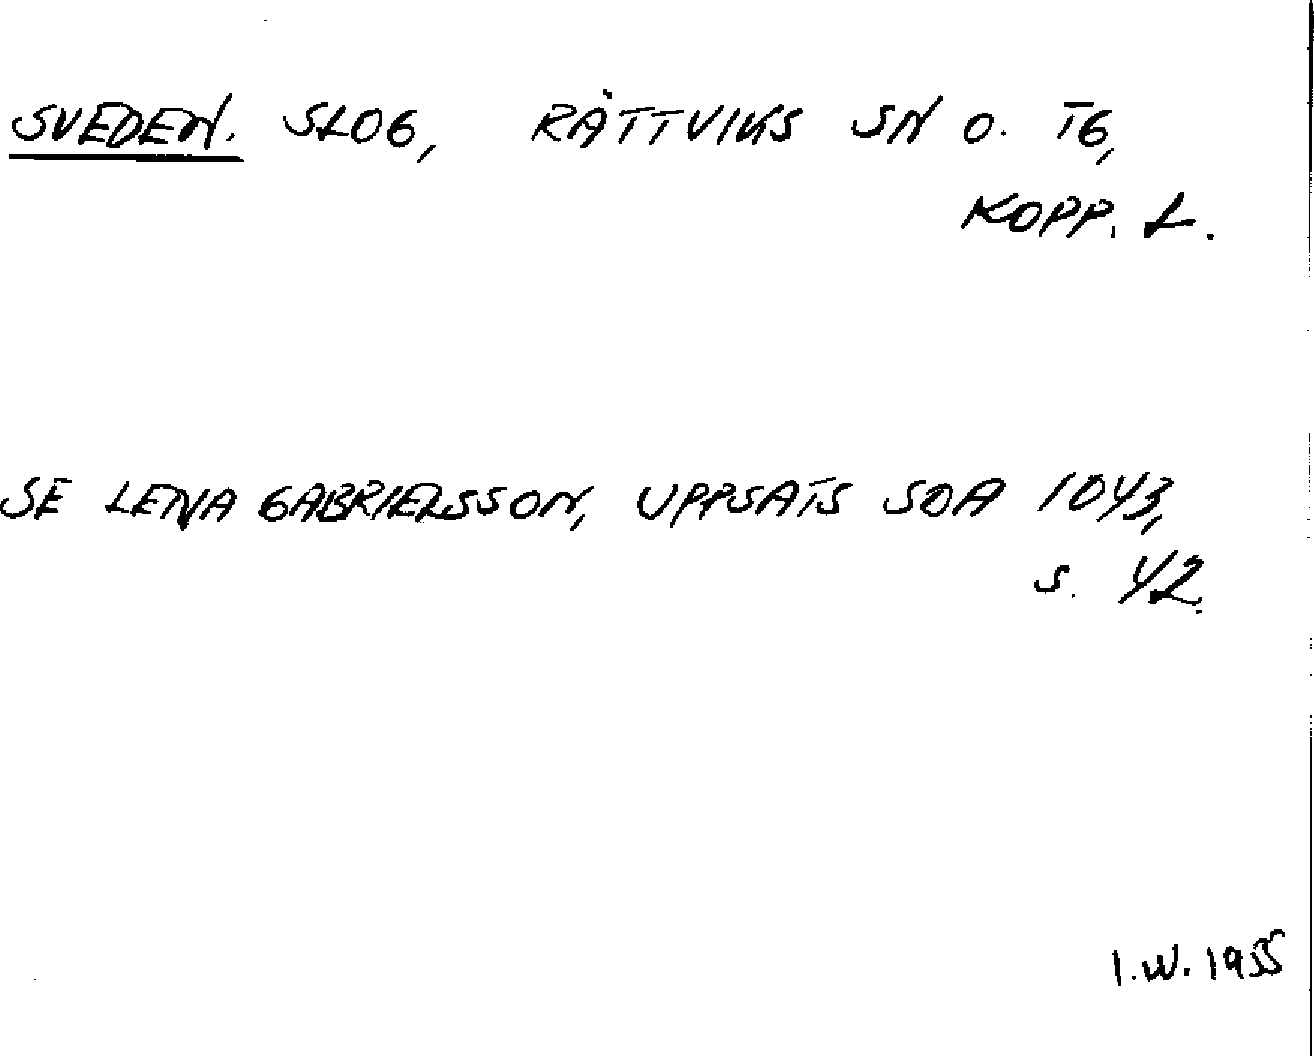 SVEDEN. SLOG, RÄTTVIKS SN O. TG,
KOPP. L.
SE LENA GABRIELSSON, UPPSATS SOA 1043,
S. 42.
I.W. 1955